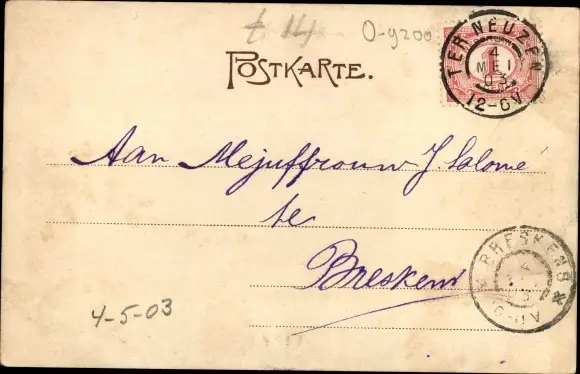 £ 14 0-9200
POSTKARTE.
TER NEUZEN
4
MEI
03
12-6V
1
Aan Mejuffrouw J. Salomé
te
Breskens
BRESKENS
4
4-5-03